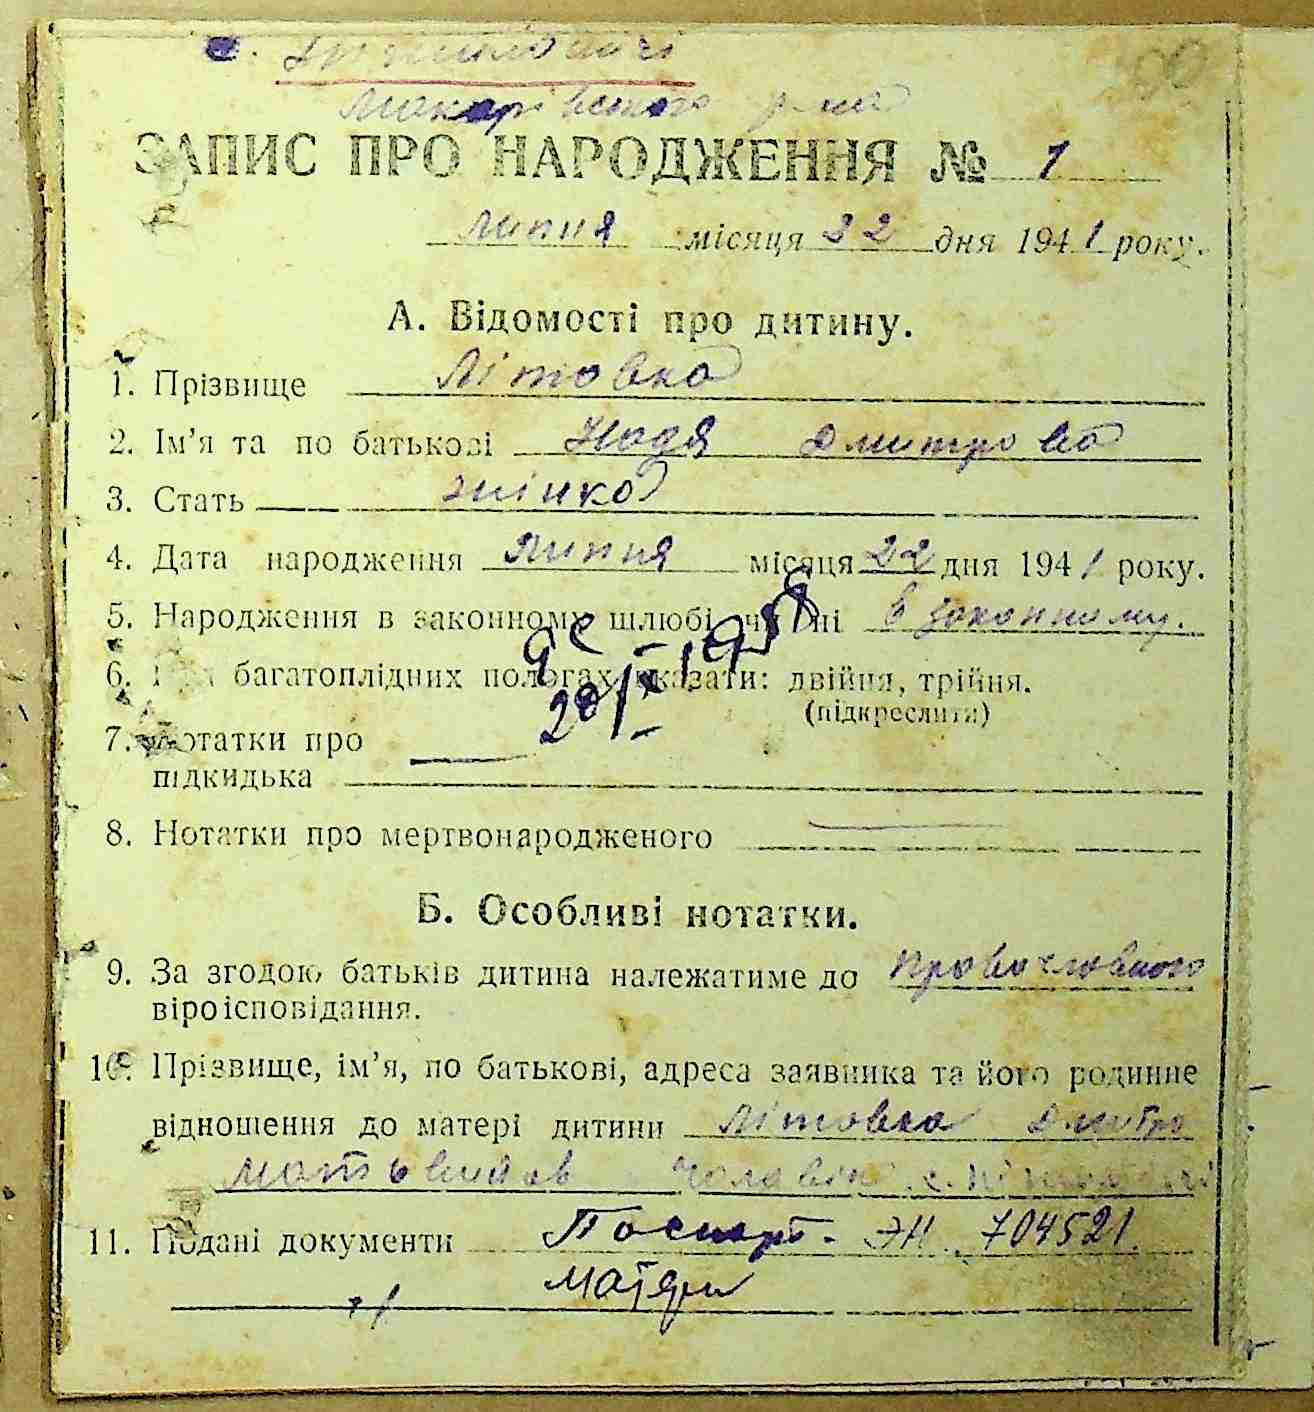 с.
Макарівського р-на
ЗАПИС ПРО НАРОДЖЕННЯ № 1
липня місяця 22 дня 1941 року.
А. Відомості про дитину.
1. Прізвище Літовка
2. Ім'я та по батькові Надя Дмитровa
3. Стать жінка
4. Дата народження липня місяця 22 дня 1941 року.
5. Народження в законному шлюбі, чи ні в законному.
6. багатоплідних пологах вказати: двійня, трійня.
(підкреслити)
20/IX 1958
7. Нотатки про
підкидька
8. Нотатки про мертвонародженого
Б. Особливі нотатки.
9. За згодою батьків дитина належатиме до православного
віроісповідання.
10. Прізвище, ім'я, по батькові, адреса заявника та його родинне
відношення до матері дитини Літовка Дмитро
чоловік с.
11. Подані документи Паспорт - ЭН 704521
матери